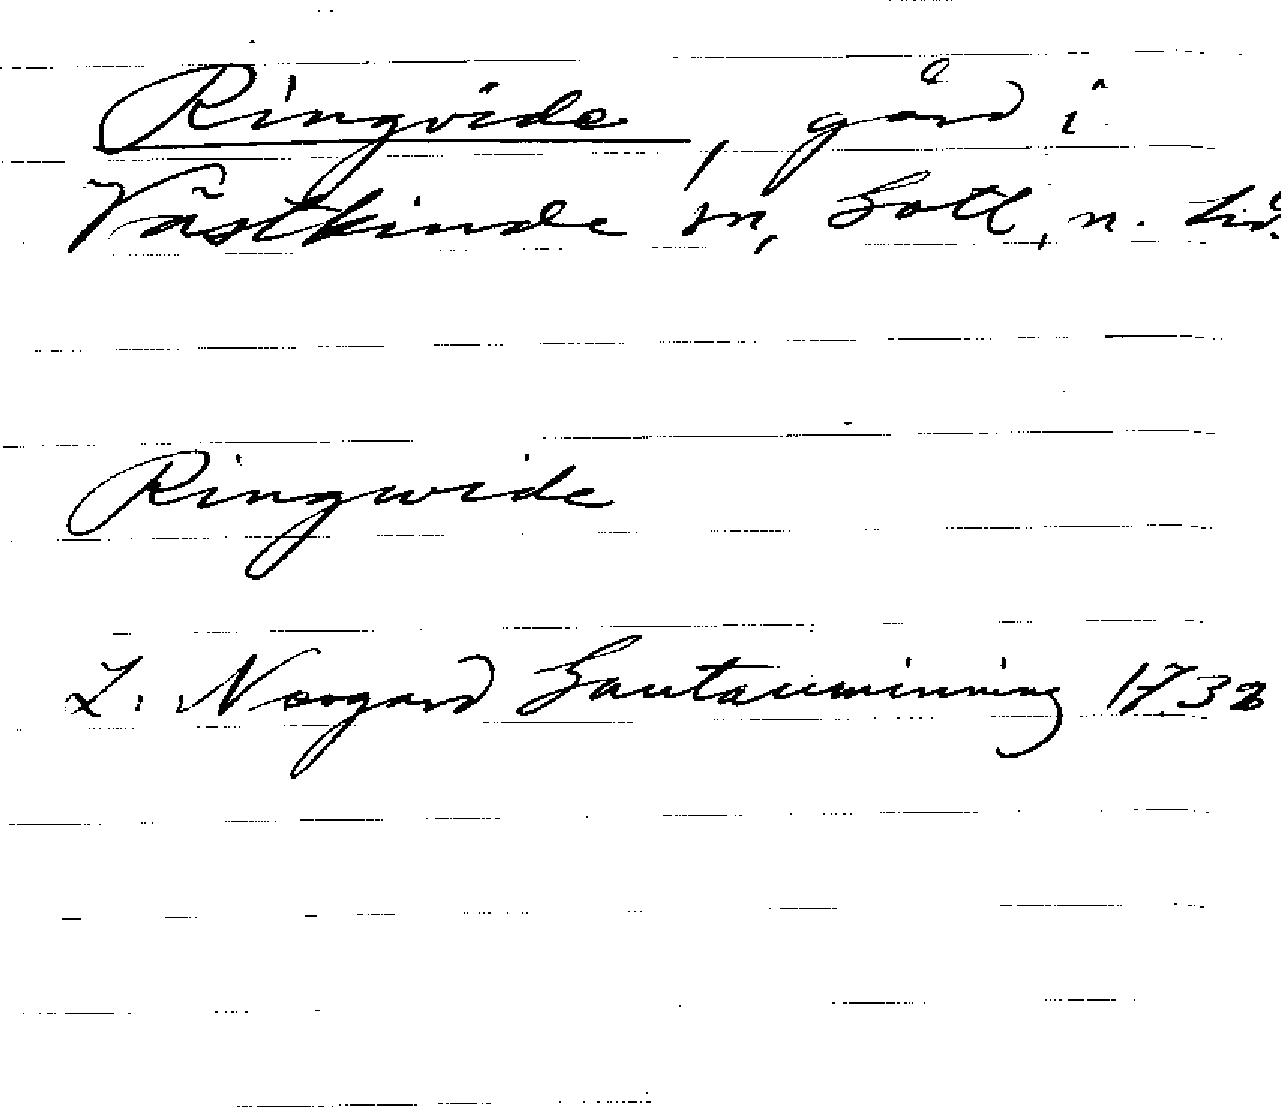 Ringvide, gård i
Västkinde sn, Gotl. n. hd.
Ringwide
L. Norgard Gautauminning 1732